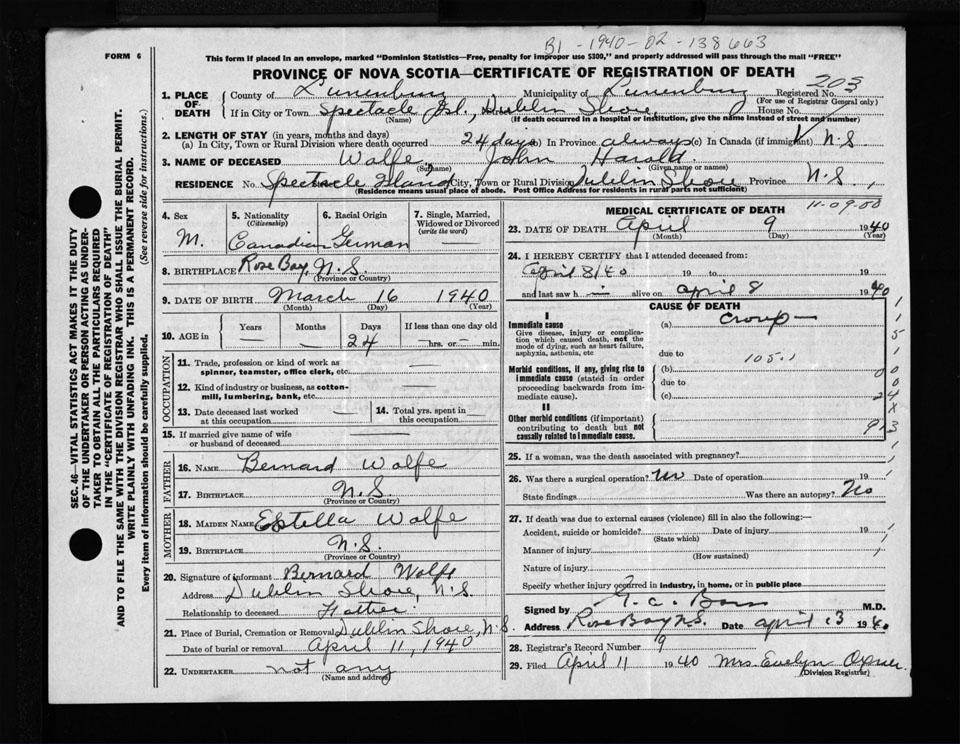 B1-1940-02-138663
FORM 6
This form if placed in an envelope, marked "Dominion Statistics—Free, penalty for improper use $300," and properly addressed will pass through the mail "FREE"
PROVINCE OF NOVA SCOTIA—CERTIFICATE OF REGISTRATION OF DEATH
203
1. PLACE OF DEATH County of Lunenburg Municipality of Lunenburg Registered No.
(For use of Registrar General only)
If in City or Town Spectacle Isl, Dublin Shore, House No.
(Name) (If death occurred in a hospital or institution, give the name instead of street and number)
2. LENGTH OF STAY (in years, months and days)
(a) In City, Town or Rural Division where death occurred 24 days (b) In Province always (c) In Canada (if immigrant) N.S.
3. NAME OF DECEASED Wolfe, John Harold
(Surname) (Given name or names)
RESIDENCE No. Spectacle Island City, Town or Rural Division Dublin Shore Province N.S.,
(Residence means usual place of abode. Post Office Address for residents in rural parts not sufficient)
4. Sex
M.
5. Nationality
(Citizenship)
Canadian
6. Racial Origin
German
7. Single, Married, Widowed or Divorced
(write the word)
—
8. BIRTHPLACE Rose Bay, N.S.
(Province or Country)
9. DATE OF BIRTH March 16 1940
(Month) (Day) (Year)
10. AGE in Years Months Days If less than one day old
— — 24 —hrs. or—min.
OCCUPATION
11. Trade, profession or kind of work as spinner, teamster, office clerk, etc. —
12. Kind of industry or business, as cotton-mill, lumbering, bank, etc. —
13. Date deceased last worked at this occupation —
14. Total yrs. spent in this occupation —
15. If married give name of wife or husband of deceased —
FATHER
16. NAME Bernard Wolfe
17. BIRTHPLACE N.S.
(Province or Country)
MOTHER
18. MAIDEN NAME Estella Wolfe
19. BIRTHPLACE N.S.
(Province or Country)
20. Signature of informant Bernard Wolfe
Address Dublin Shore, N.S.
Relationship to deceased Father
21. Place of Burial, Cremation or Removal Dublin Shore, N.S.
Date of burial or removal April 11, 1940
22. UNDERTAKER not any
(Name and address)
MEDICAL CERTIFICATE OF DEATH 11-09-00
23. DATE OF DEATH April 9 1940
(Month) (Day) (Year)
24. I HEREBY CERTIFY that I attended deceased from:
April 8/40 19 to 19
and last saw h — alive on April 8 1940
CAUSE OF DEATH
I
Immediate cause
Give disease, injury or complication which caused death, not the mode of dying, such as heart failure, asphyxia, asthenia, etc
(a) Croup —
due to
105.1
Morbid conditions, if any, giving rise to immediate cause (stated in order proceeding backwards from immediate cause).
(b)
due to
(c)
II
Other morbid conditions (if important) contributing to death but not causally related to immediate cause.
1
1
5
1
0 0
0
24
X
93
25. If a woman, was the death associated with pregnancy?
26. Was there a surgical operation? No Date of operation 19
State findings Was there an autopsy? No
27. If death was due to external causes (violence) fill in also the following:—
Accident, suicide or homicide? Date of injury 19
(State which)
Manner of injury
(How sustained)
Nature of injury
Specify whether injury occurred in industry, in home, or in public place
Signed by M.D.
Address Rose Bay N.S. Date April 13 1940
28. Registrar's Record Number 9
29. Filed April 11 1940 Mrs Evelyn Oxner
(Division Registrar)
SEC. 46—VITAL STATISTICS ACT MAKES IT THE DUTY
OF THE UNDERTAKER OR PERSON ACTING AS UNDER-
TAKER TO OBTAIN ALL THE PARTICULARS REQUIRED
IN THE "CERTIFICATE OF REGISTRATION OF DEATH"
AND TO FILE THE SAME WITH THE DIVISION REGISTRAR WHO SHALL ISSUE THE BURIAL PERMIT.
WRITE PLAINLY WITH UNFADING INK. THIS IS A PERMANENT RECORD.
Every item of information should be carefully supplied. (See reverse side for instructions.)